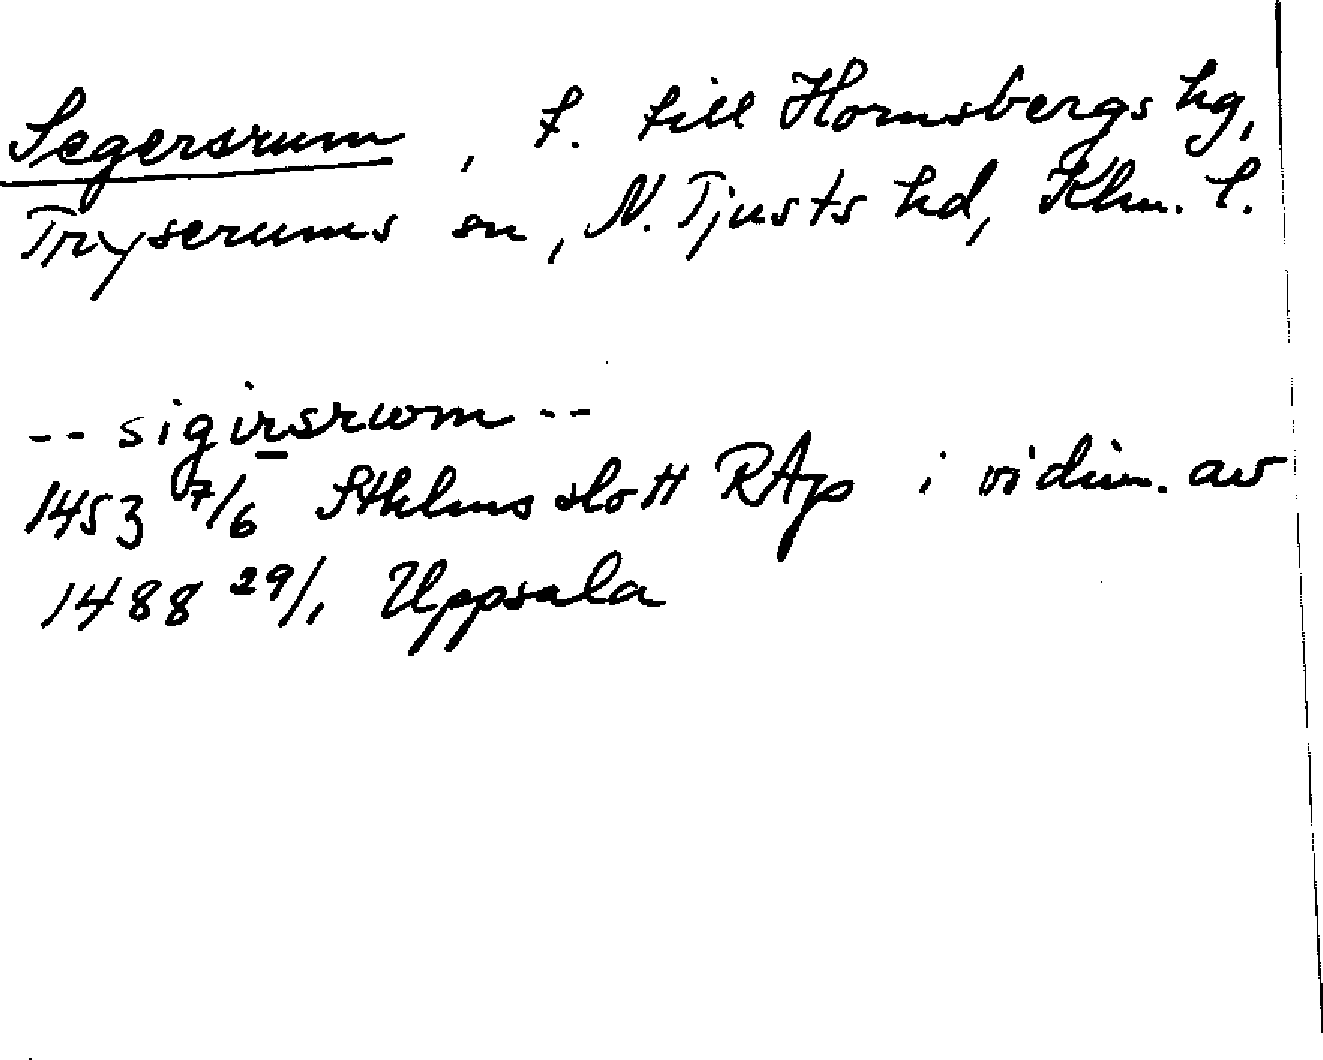 Segersrum, t. till Hornsbergs hg,
Tryserums sn, N. Tjusts hd, Klm. l.
-- sigirsrwm --
1453 7/6 Sthlms slott RAp i vidim. av
1488 29/1 Uppsala